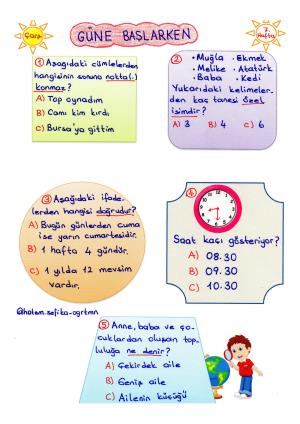 Çarş.
GÜNE BAŞLARKEN
1. Hafta
① Aşagıdaki cümlelerden
hangisinin sonuna nokta(.)
konmaz?
A) Top oynadım
B) Camı kim kırdı
C) Bursa'ya gittim
② • Muğla • Ekmek
• Melike • Atatürk
• Baba • Kedi
Yukarıdaki kelimeler-
den kaç tanesi özel
isimdir?
A) 3 B) 4 C) 6
③ Aşağıdaki ifade-
lerden hangisi doğrudur?
A) Bugün günlerden cuma
ise yarın cumartesidir.
B) 1 hafta 4 gündür.
C) 1 yılda 12 mevsim
vardır.
④
Saat kaçı gösteriyor?
A) 08.30
B) 09.30
C) 10.30
@hatem.sefika_ogrtmn
⑤ Anne, baba ve ço-
cuklardan oluşan top-
luluğa ne denir?
A) Çekirdek aile
B) Geniş aile
C) Ailenin küçüğü